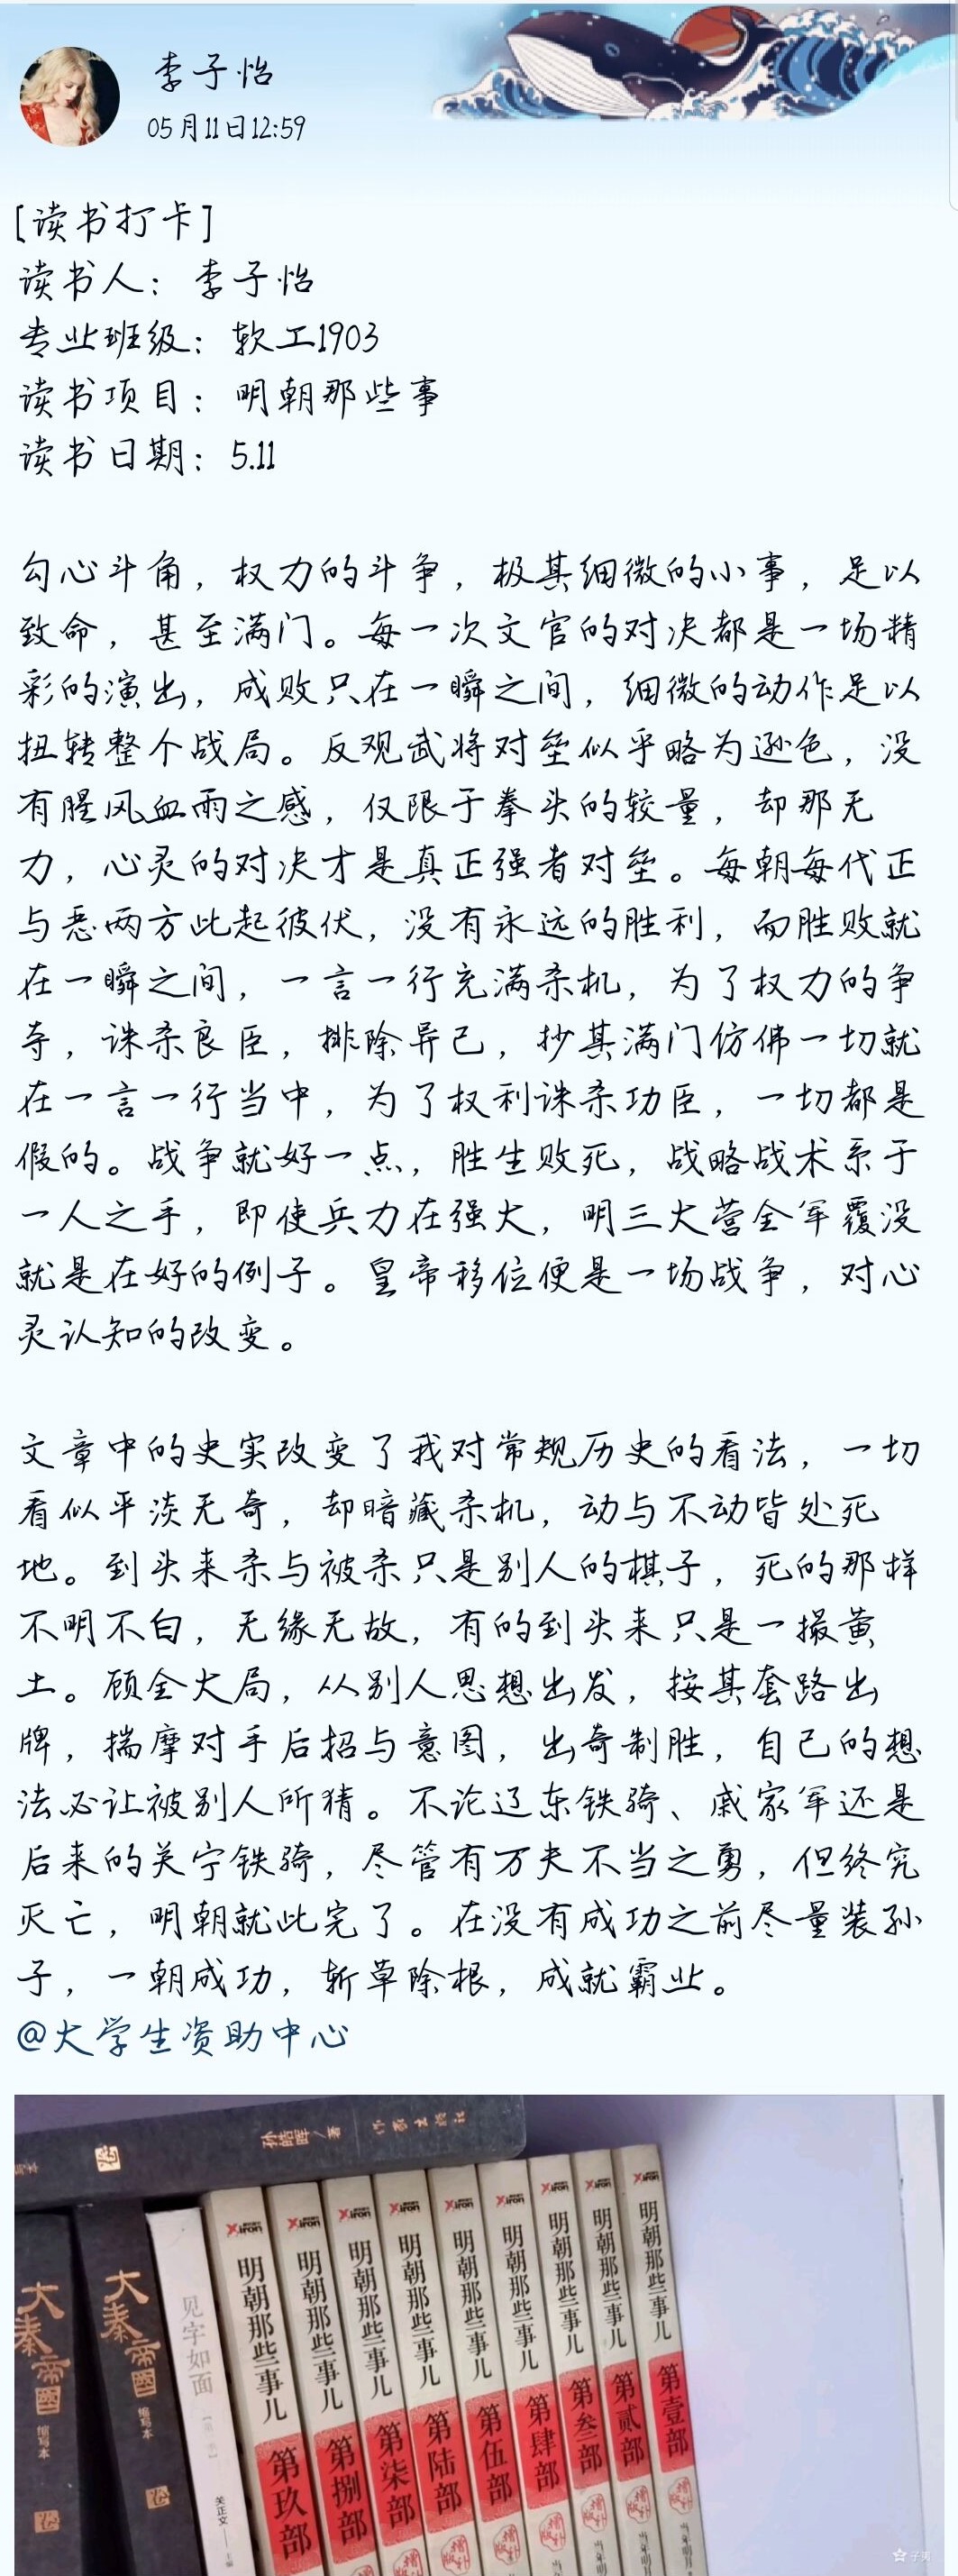 李子怡
05月11日12:59
[读书打卡]
读书人：李子怡
专业班级：软工1903
读书项目：明朝那些事
读书日期：5.11
勾心斗角，权力的斗争，极其细微的小事，足以
致命，甚至满门。每一次文官的对决都是一场精
彩的演出，成败只在一瞬之间，细微的动作足以
扭转整个战局。反观武将对垒似乎略为逊色，没
有腥风血雨之感，仅限于拳头的较量，却那无
力，心灵的对决才是真正强者对垒。每朝每代正
与恶两方此起彼伏，没有永远的胜利，而胜败就
在一瞬之间，一言一行充满杀机，为了权力的争
夺，诛杀良臣，排除异己，抄其满门仿佛一切就
在一言一行当中，为了权利诛杀功臣，一切都是
假的。战争就好一点，胜生败死，战略战术系于
一人之手，即使兵力在强大，明三大营全军覆没
就是在好的例子。皇帝移位便是一场战争，对心
灵认知的改变。
文章中的史实改变了我对常规历史的看法，一切
看似平淡无奇，却暗藏杀机，动与不动皆处死
地。到头来杀与被杀只是别人的棋子，死的那样
不明不白，无缘无故，有的到头来只是一撮黄
土。顾全大局，从别人思想出发，按其套路出
牌，揣摩对手后招与意图，出奇制胜，自己的想
法必让被别人所猜。不论辽东铁骑、戚家军还是
后来的关宁铁骑，尽管有万夫不当之勇，但终究
灭亡，明朝就此完了。在没有成功之前尽量装孙
子，一朝成功，斩草除根，成就霸业。
@大学生资助中心
孙皓晖/著
作家出版社
大秦帝國
缩写本
大秦帝國
缩写本
见字如面
关正文
明朝那些事儿
第玖部
明朝那些事儿
第捌部
明朝那些事儿
第柒部
明朝那些事儿
第陆部
明朝那些事儿
第伍部
明朝那些事儿
第肆部
明朝那些事儿
第叁部
明朝那些事儿
第贰部
明朝那些事儿
第壹部